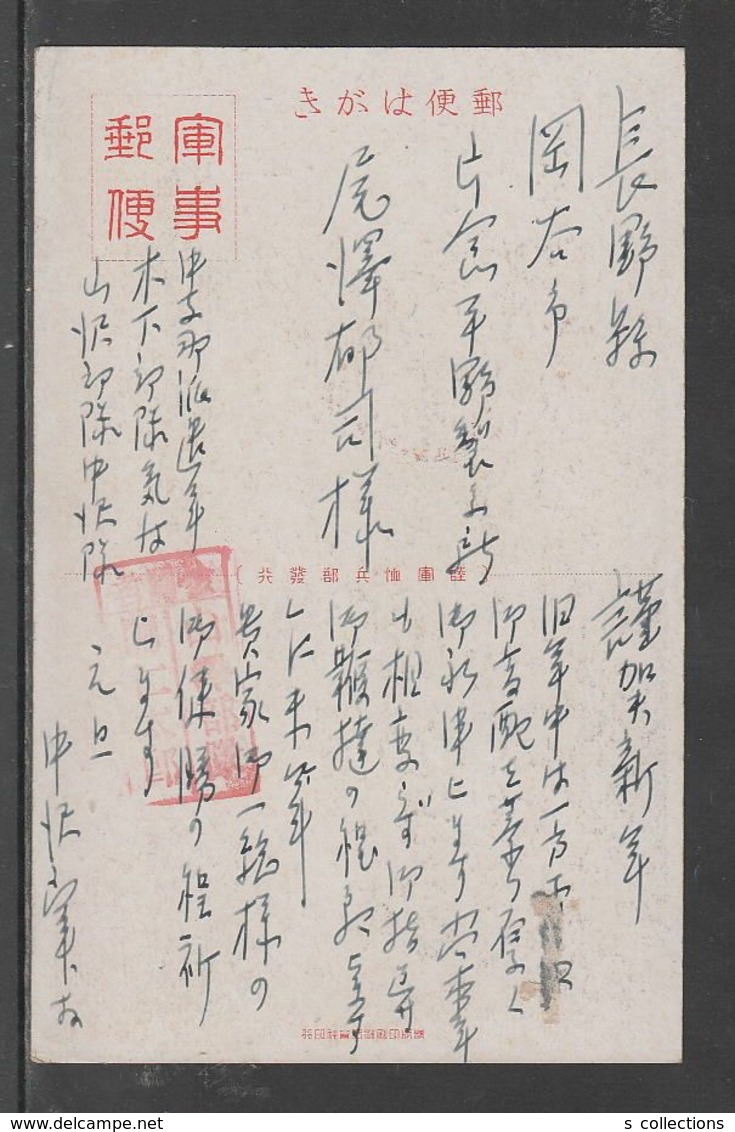 郵便はがき
軍事
郵便
長野縣
岡谷市
片倉平野製糸所
尾澤郁司様
中支那派遣軍
木下部隊気付
山沢部隊中沢隊
(陸軍恤兵部發行)
謹賀新年
旧年中は一方
御高配を蒙り
御礼申上ます 尚本年
も相変らず御指導
御鞭撻の程
貴家御一統様の
御健勝の程祈
上ます
元旦
中沢
s collections